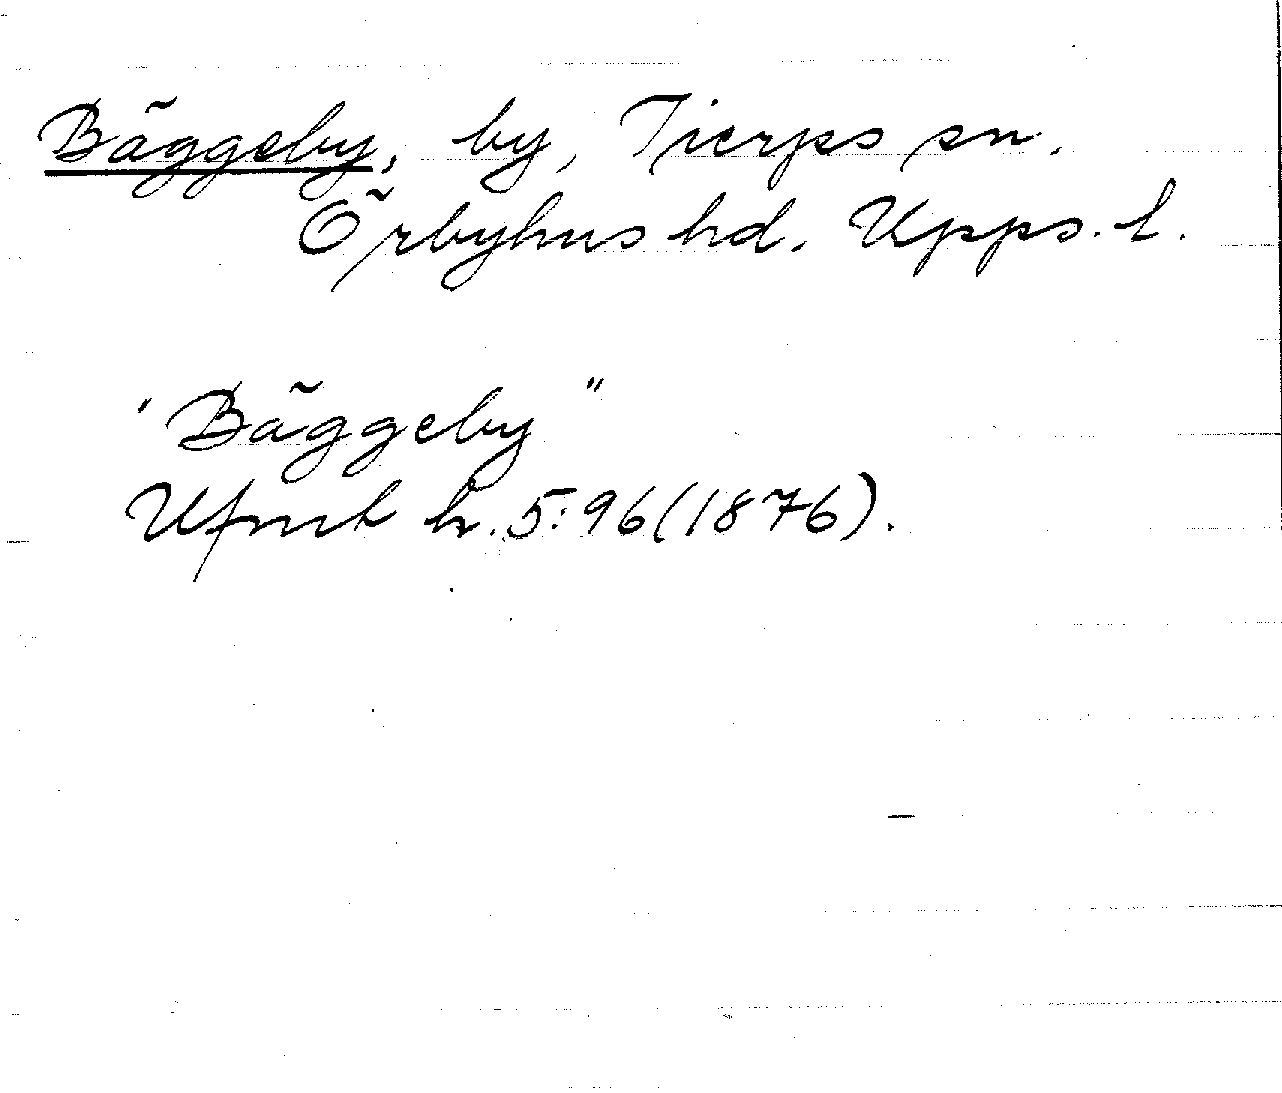 Bäggeby, by, Tierps sn.
Örbyhus hd. Upps. l.
"Bäggeby"
Ufmt h. 5:96 (1876).